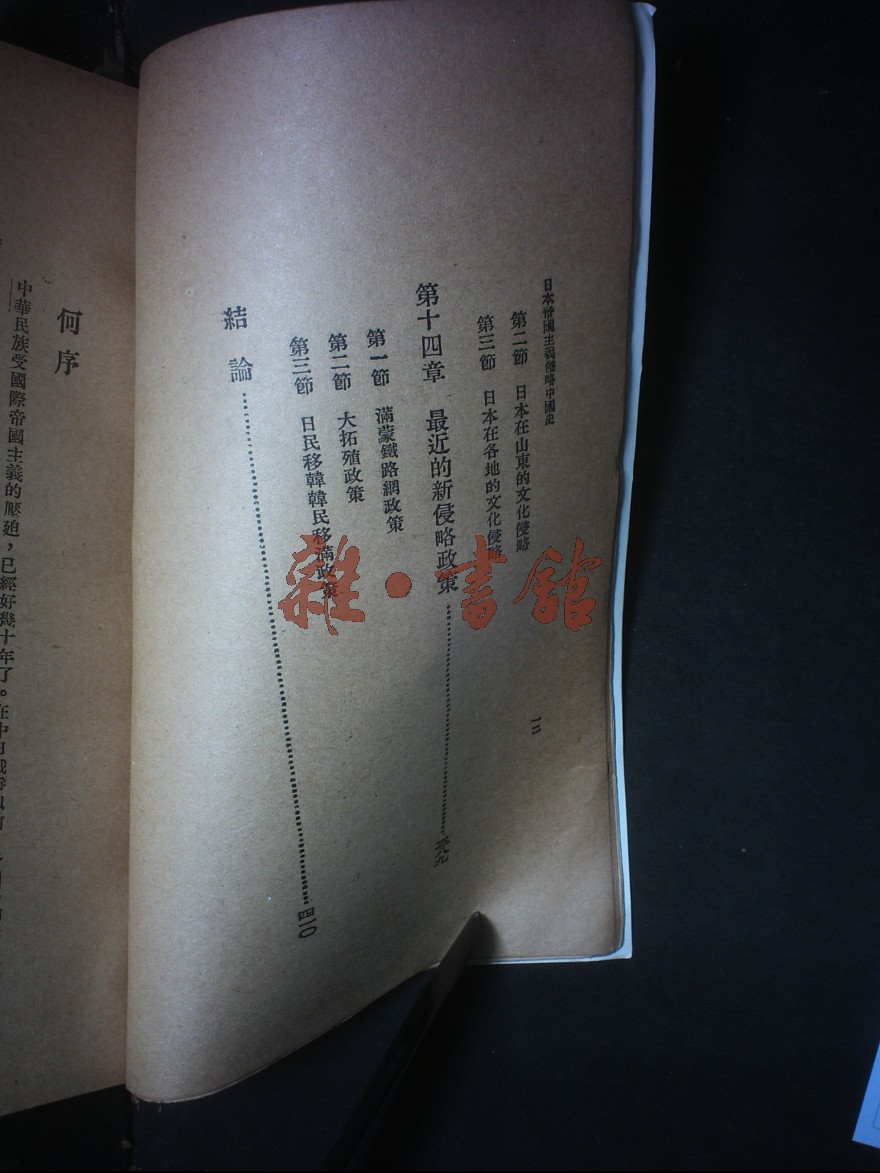 日本帝國主義侵略中國史
第二節　日本在山東的文化侵略
第三節　日本在各地的文化侵略
一二
第十四章　最近的新侵略政策……三八九
第一節　滿蒙鐵路網政策
第二節　大拓殖政策
第三節　日民移韓韓民移滿政策
結論……四二〇
何序
中華民族受國際帝國主義的壓迫，已經好幾十年了。在中
雜·書館